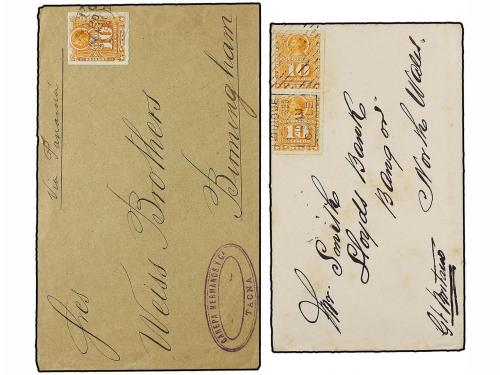 via Panamá
Sres
Weiss Brothers
Birmingham
CANEPA HERMANOS Y Ca
TACNA
10
10
Mr. Smith
Lloyds Bank
Bangor
North Wales.